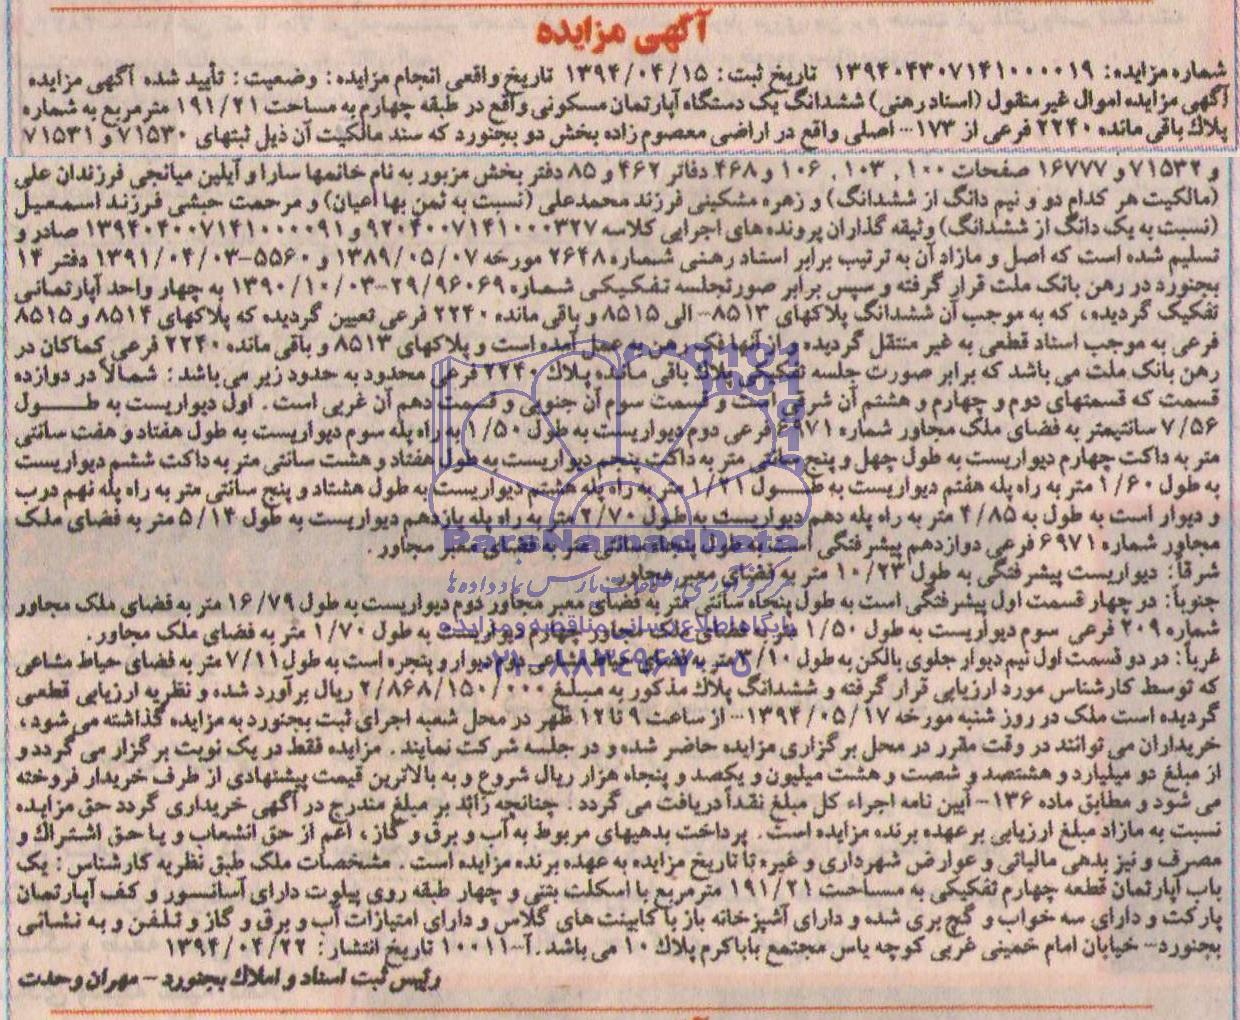 آگهی مزایده
شماره مزایده: ۱۳۹۴۰۴۳۰۷۱۴۱۰۰۰۰۱۹ تاریخ ثبت: ۱۳۹۴/۰۴/۱۵ تاریخ واقعی انجام مزایده: وضعیت: تأیید شده آگهی مزایده
آگهی مزایده اموال غیر منقول (اسناد رهنی) ششدانگ یک دستگاه آپارتمان مسکونی واقع در طبقه چهارم به مساحت ۱۹۱/۲۱ مترمربع به شماره
پلاک باقی مانده ۲۲۴۰ فرعی از ۱۷۳-- اصلی واقع در اراضی معصوم زاده بخش دو بجنورد که سند مالکیت آن ذیل ثبتهای ۷۱۵۳۰ و ۷۱۵۳۱
و ۷۱۵۳۲ و ۱۶۷۷۷ صفحات ۱۰۰, ۱۰۳, ۱۰۶ و ۴۶۸ دفاتر ۴۶۲ و ۸۵ دفتر بخش مزبور به نام خانمها سارا و آیلین میانجی فرزندان علی
(مالکیت هر کدام دو و نیم دانگ از ششدانگ) و زهره مشکینی فرزند محمدعلی (نسبت به ثمن بها اعیان) و مرحمت حبشی فرزند اسمعیل
(نسبت به یک دانگ از ششدانگ) وثیقه گذاران پرونده های اجرایی کلاسه ۹۲۰۴۰۰۷۱۴۱۰۰۰۳۲۷ و ۱۳۹۴۰۴۰۰۷۱۴۱۰۰۰۰۹۱ صادر و
تسلیم شده است که اصل و مازاد آن به ترتیب برابر اسناد رهنی شماره ۲۶۴۸ مورخه ۱۳۸۹/۰۵/۰۷ و ۵۵۶۰-۱۳۹۱/۰۴/۰۳ دفتر ۱۴
بجنورد در رهن بانک ملت قرار گرفته و سپس برابر صورتجلسه تفکیکی شماره ۲۹/۹۶۰۶۹-۱۳۹۰/۱۰/۰۳ به چهار واحد آپارتمانی
تفکیک گردیده، که به موجب آن ششدانگ پلاکهای ۸۵۱۳-- الی ۸۵۱۵ و باقی مانده ۲۲۴۰ فرعی تعیین گردیده که پلاکهای ۸۵۱۴ و ۸۵۱۵
فرعی به موجب اسناد قطعی به غیر منتقل گردیده و از آنها فک رهن به عمل آمده است و پلاکهای ۸۵۱۳ و باقی مانده ۲۲۴۰ فرعی کماکان در
رهن بانک ملت می باشد که برابر صورت جلسه تفکیکی پلاک باقی مانده پلاک ۲۲۴۰ فرعی محدود به حدود زیر می باشد: شمالاً در دوازده
قسمت که قسمتهای دوم و چهارم و هشتم آن شرقی است و قسمت سوم آن جنوبی و قسمت دهم آن غربی است. اول دیواریست به طول
۷/۵۶ سانتیمتر به فضای ملک مجاور شماره ۶۹۷۱ فرعی دوم دیواریست به طول ۱/۵۰ به راه پله سوم دیواریست به طول هفتاد و هفت سانتی
متر به داکت چهارم دیواریست به طول چهل و پنج سانتی متر به داکت پنجم دیواریست به طول هفتاد و هشت سانتی متر به داکت ششم دیواریست
به طول ۱/۶۰ متر به راه پله هفتم دیواریست به طول ۱/۲۱ متر به راه پله هشتم دیواریست به طول هشتاد و پنج سانتی متر به راه پله نهم درب
و دیوار است به طول به ۴/۸۵ متر به راه پله دهم دیواریست به طول ۲/۷۰ متر به راه پله یازدهم دیواریست به طول ۵/۱۴ متر به فضای ملک
مجاور شماره ۶۹۷۱ فرعی دوازدهم پیشرفتگی است به طول پنجاه سانتی متر به فضای معبر مجاور.
شرقاً: دیواریست پیشرفتگی به طول ۱۰/۲۳ متر به فضای معبر مجاور
جنوباً: در چهار قسمت اول پیشرفتگی است به طول پنجاه سانتی متر به فضای معبر مجاور دوم دیواریست به طول ۱۶/۷۹ متر به فضای ملک مجاور
شماره ۲۰۹ فرعی سوم دیواریست به طول ۱/۵۰ متر به فضای ملک مجاور چهارم دیواریست به طول ۱/۷۰ متر به فضای ملک مجاور.
غرباً: در دو قسمت اول نیم دیوار جلوی بالکن به طول ۳/۱۰ متر به فضای حیاط مشاعی دوم دیوار و پنجره است به طول ۷/۱۱ متر به فضای حیاط مشاعی
که توسط کارشناس مورد ارزیابی قرار گرفته و ششدانگ پلاک مذکور به مبلغ ۲/۸۶۸/۱۵۰/۰۰۰ ریال برآورد شده و نظریه ارزیابی قطعی
گردیده است ملک در روز شنبه مورخه ۱۳۹۴/۰۵/۱۷-- از ساعت ۹ تا ۱۲ ظهر در محل شعبه اجرای ثبت بجنورد به مزایده گذاشته می شود،
خریداران می توانند در وقت مقرر در محل برگزاری مزایده حاضر شده و در جلسه شرکت نمایند. مزایده فقط در یک نوبت برگزار می گردد و
از مبلغ دو میلیارد و هشتصد و شصت و هشت میلیون و یکصد و پنجاه هزار ریال شروع و به بالاترین قیمت پیشنهادی از طرف خریدار فروخته
می شود و مطابق ماده ۱۳۶- آیین نامه اجراء کل مبلغ نقداً دریافت می گردد. چنانچه زائد بر مبلغ مندرج در آگهی خریداری گردد حق مزایده
نسبت به مازاد مبلغ ارزیابی بر عهده برنده مزایده است. پرداخت بدهیهای مربوط به آب و برق و گاز، اعم از حق انشعاب و یا حق اشتراک و
مصرف و نیز بدهی مالیاتی و عوارض شهرداری و غیره تا تاریخ مزایده به عهده برنده مزایده است. مشخصات ملک طبق نظریه کارشناس: یک
باب آپارتمان قطعه چهارم تفکیکی به مساحت ۱۹۱/۲۱ مترمربع با اسکلت بتنی و چهار طبقه روی پیلوت دارای آسانسور و کف آپارتمان
پارکت و دارای سه خواب و گچ بری شده و دارای آشپزخانه باز با کابینت های گلاس و دارای امتیازات آب و برق و گاز و تلفن و به نشانی
بجنورد- خیابان امام خمینی غربی کوچه یاس مجتمع باباکرم پلاک ۱۰ می باشد. آ-۱۰۰۱۱ تاریخ انتشار: ۱۳۹۴/۰۴/۲۲
رئیس ثبت اسناد و املاک بجنورد - مهران وحدت
ParsNamadData
مرکز فرآوری اطلاعات پارس نماد داده ها
پایگاه اطلاع رسانی مناقصه و مزایده
۰۲۱-۸۸۳۴۹۶۷۰-۵